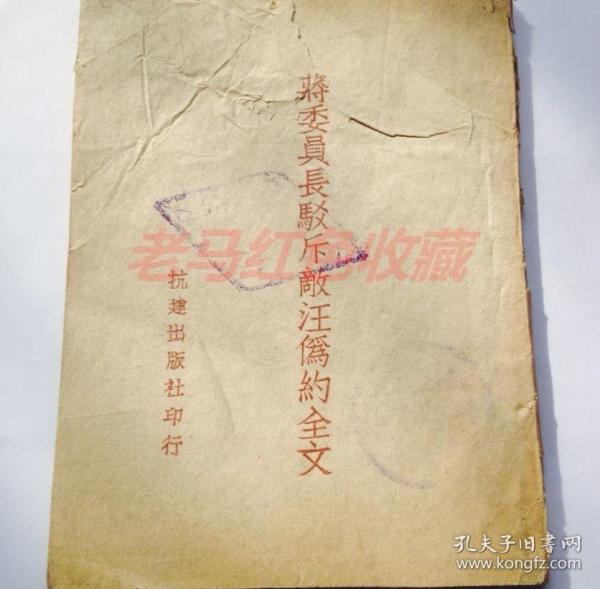 蔣委員長駁斥敵汪僞約全文
抗建出版社印行
老马红色收藏
孔夫子旧书网